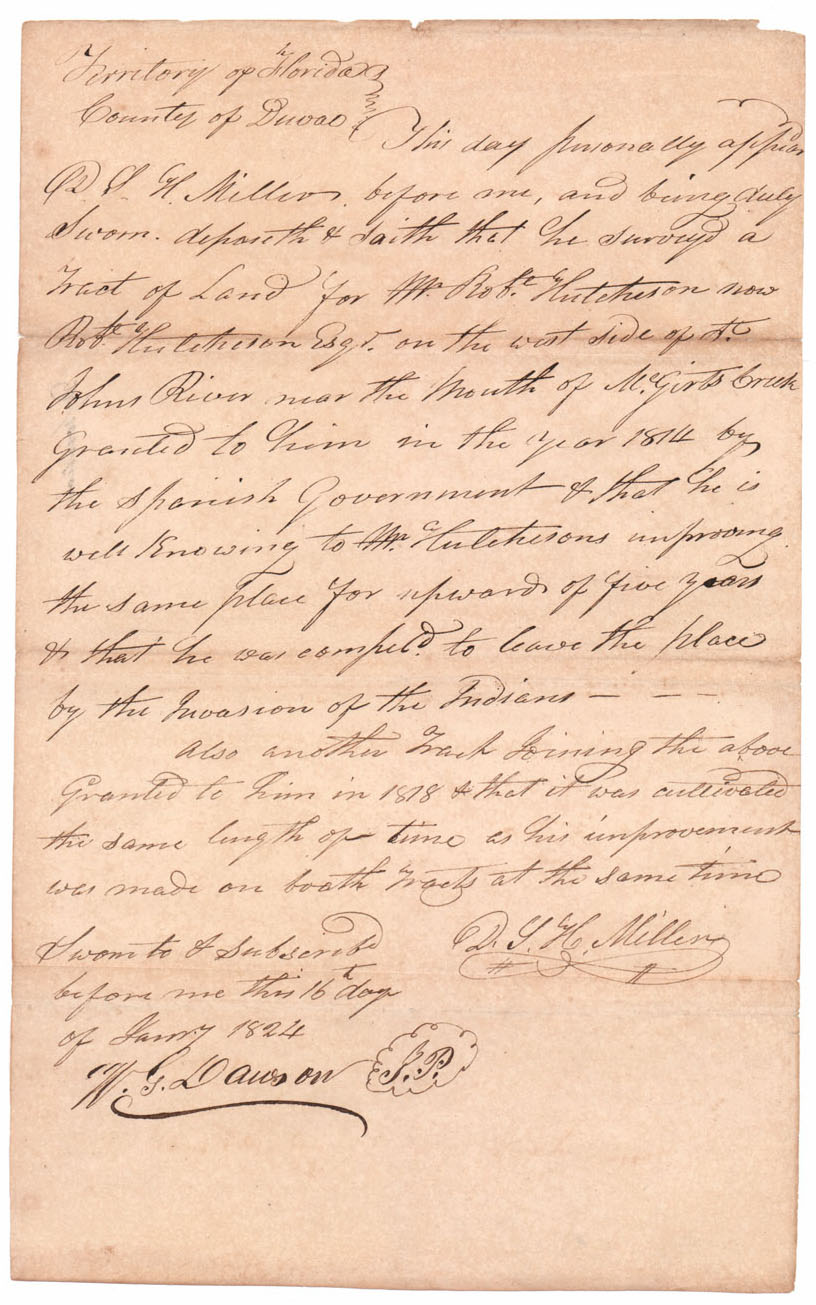 Territory of Florida
County of Duval
This day personally appear
D. S. H. Miller before me, and being duly
Sworn. deposeth & saith that he survey'd a
Tract of Land for Mr. Robt. Hutcheson now
Robt. Hutcheson Esqr. on the west side of St.
Johns River near the Mouth of McGirts Creek
Granted to him in the year 1814 by
the Spanish Government & that he is
well Knowing to Mr. Hutchesons improving
the same place for upwards of five years
& that he was compeld. to leave the place
by the Invasion of the Indians — — —
Also another Track Joining the above
Granted to him in 1818 & that it was cultivated
the same length of time as his improvement
was made on boath Tracts at the same time
D. S. H. Miller
Sworn to & Subscribd
before me this 16th day
of Janry 1824
W. G. Dawson J.P.